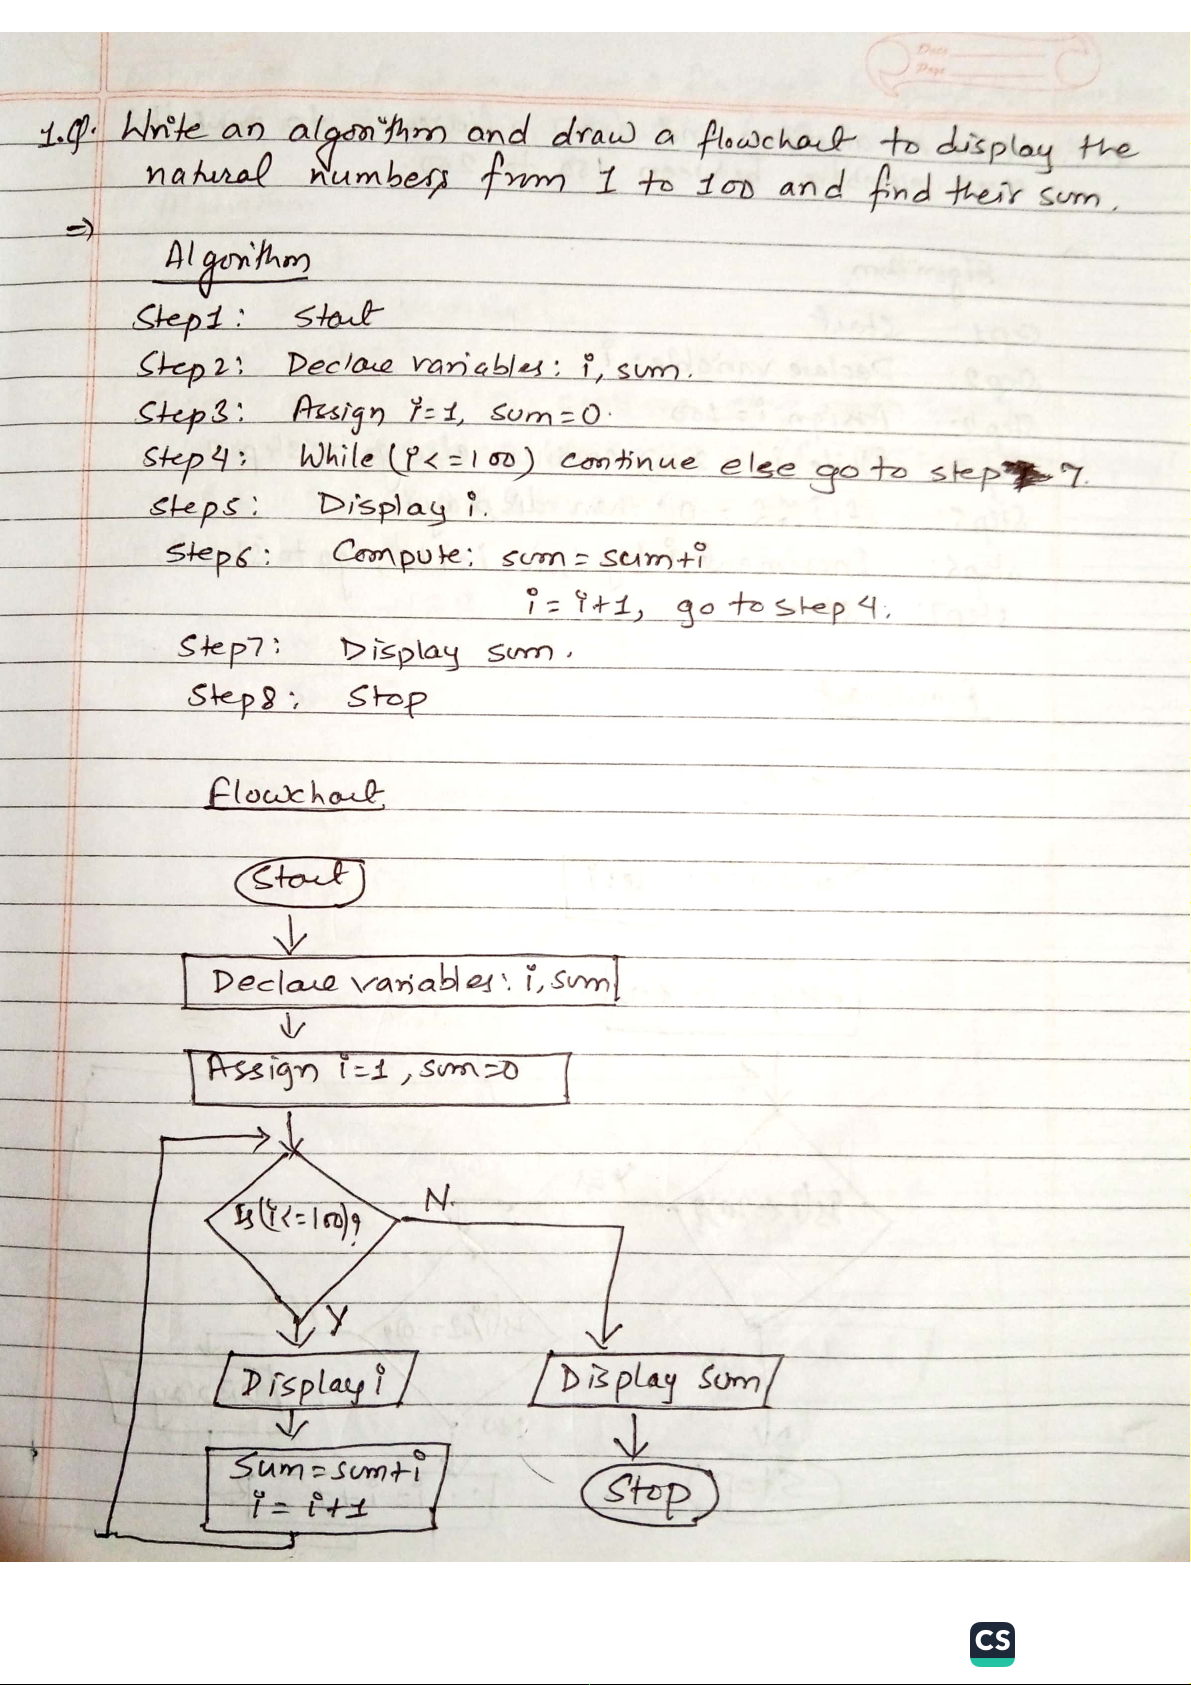 Date
Page
1.Q. Write an algorithm and draw a flowchart to display the
natural numbers from 1 to 100 and find their sum.
=>
Algorithm
Step1: Start
Step2: Declare variables: i, sum.
Step3: Assign i=1, sum=0.
Step4: While (i<=100) continue else go to step 7.
Step5: Display i.
Step6: Compute: sum = sum+i
i = i+1, go to step 4.
Step7: Display sum.
Step8: Stop
Flowchart
Start
Declare variables: i, sum
Assign i=1, sum=0
Is(i<=100)?
N.
Y
Display i
Display sum
Sum=sum+i
i = i+1
Stop
CS